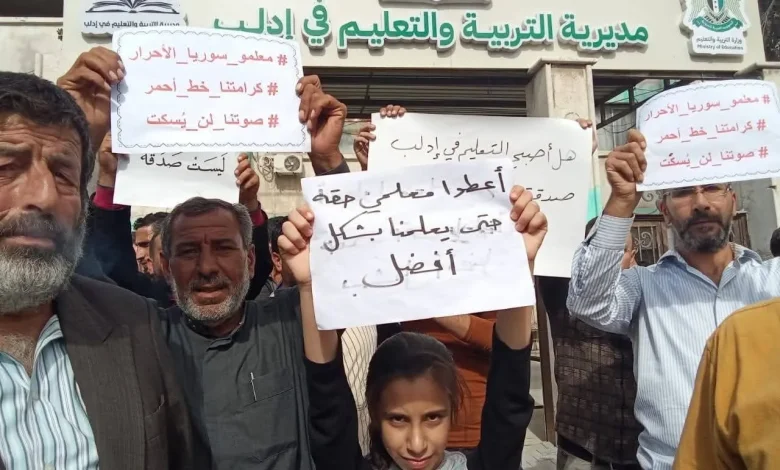 مديرية التربية والتعليم في إدلب
مديرية التربية والتعليم في إدلب
وزارة التربية والتعليم
Ministry of Education
# معلمو_سوريا_الأحرار
# كرامتنا_خط_أحمر
# صوتنا_لن_يُسكت
ليست صدقة
هل أصبح التعليم في إدلب
صدقة
أعطوا معلمي حقه
حتى يعلمنا بشكل
أفضل.
# معلمو_سوريا_الأحرار
# كرامتنا_خط_أحمر
# صوتنا_لن_يُسكت